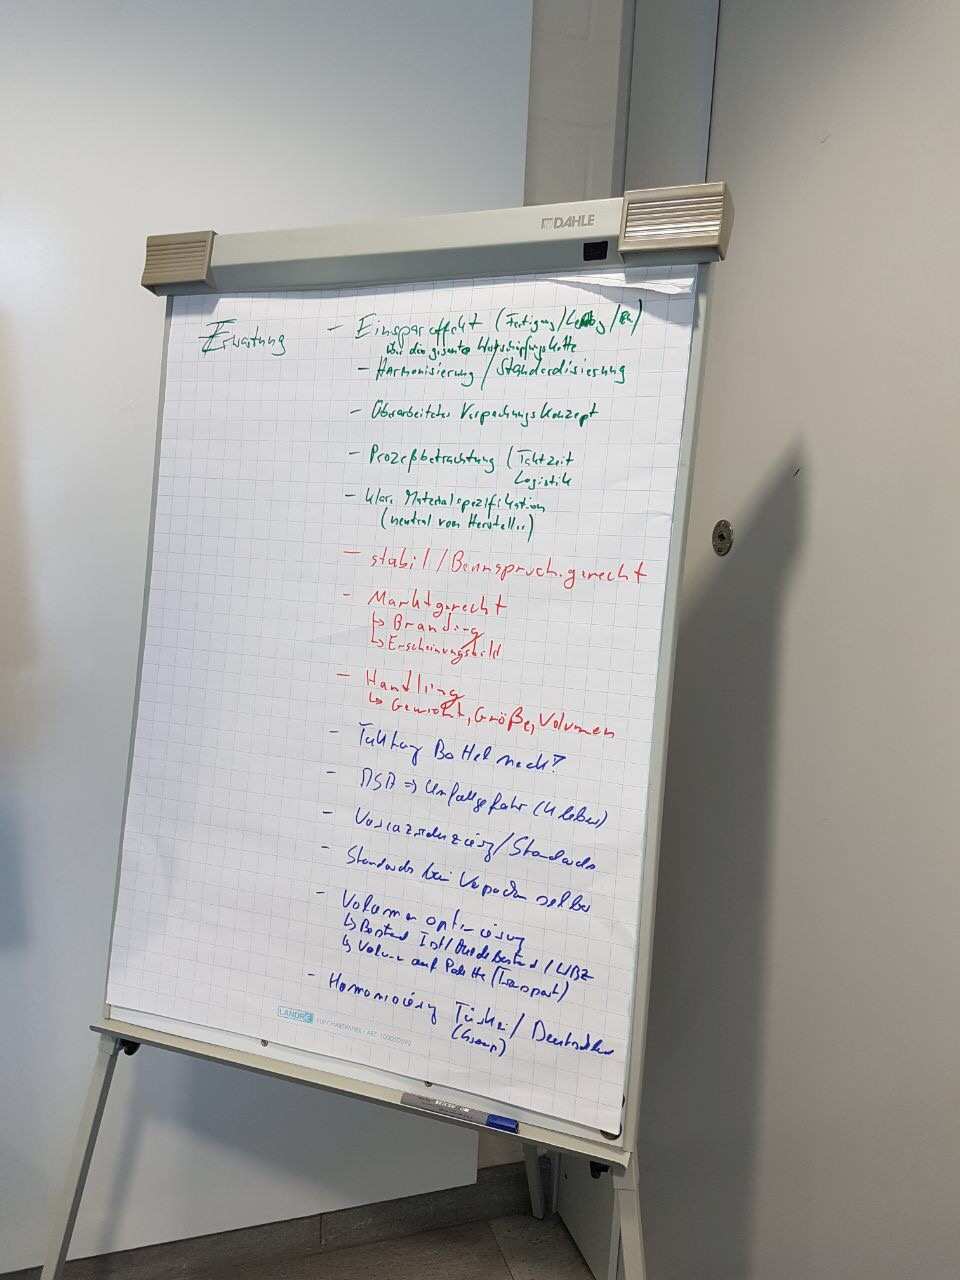 DAHLE
Erwartung
- Einspareffekt (Fertigung/
über die gesamte Wertschöpfungskette
- Harmonisierung / Standardisierung
- Überarbeitetes Verpackungskonzept
- Prozeßbetrachtung (Taktzeit
Logistik
- klare Materialspezifikation
(neutral vom Hersteller)
- stabil/
- Marktgerecht
↳ Branding
↳ Erscheinungsbild
- Handling
↳ Gewicht, Größe, Volumen
- Taktung Bottelneck?
- ASA => Unfallgefahr (Kleber)
- /Standards
- Standards bei Verpacken selber
- Volumenoptimierung
↳ Bestand Ist/ /WBZ
↳ Volumen auf Palette (Transport)
- Türkei/Deutschland
(Group)
LANDRÉ